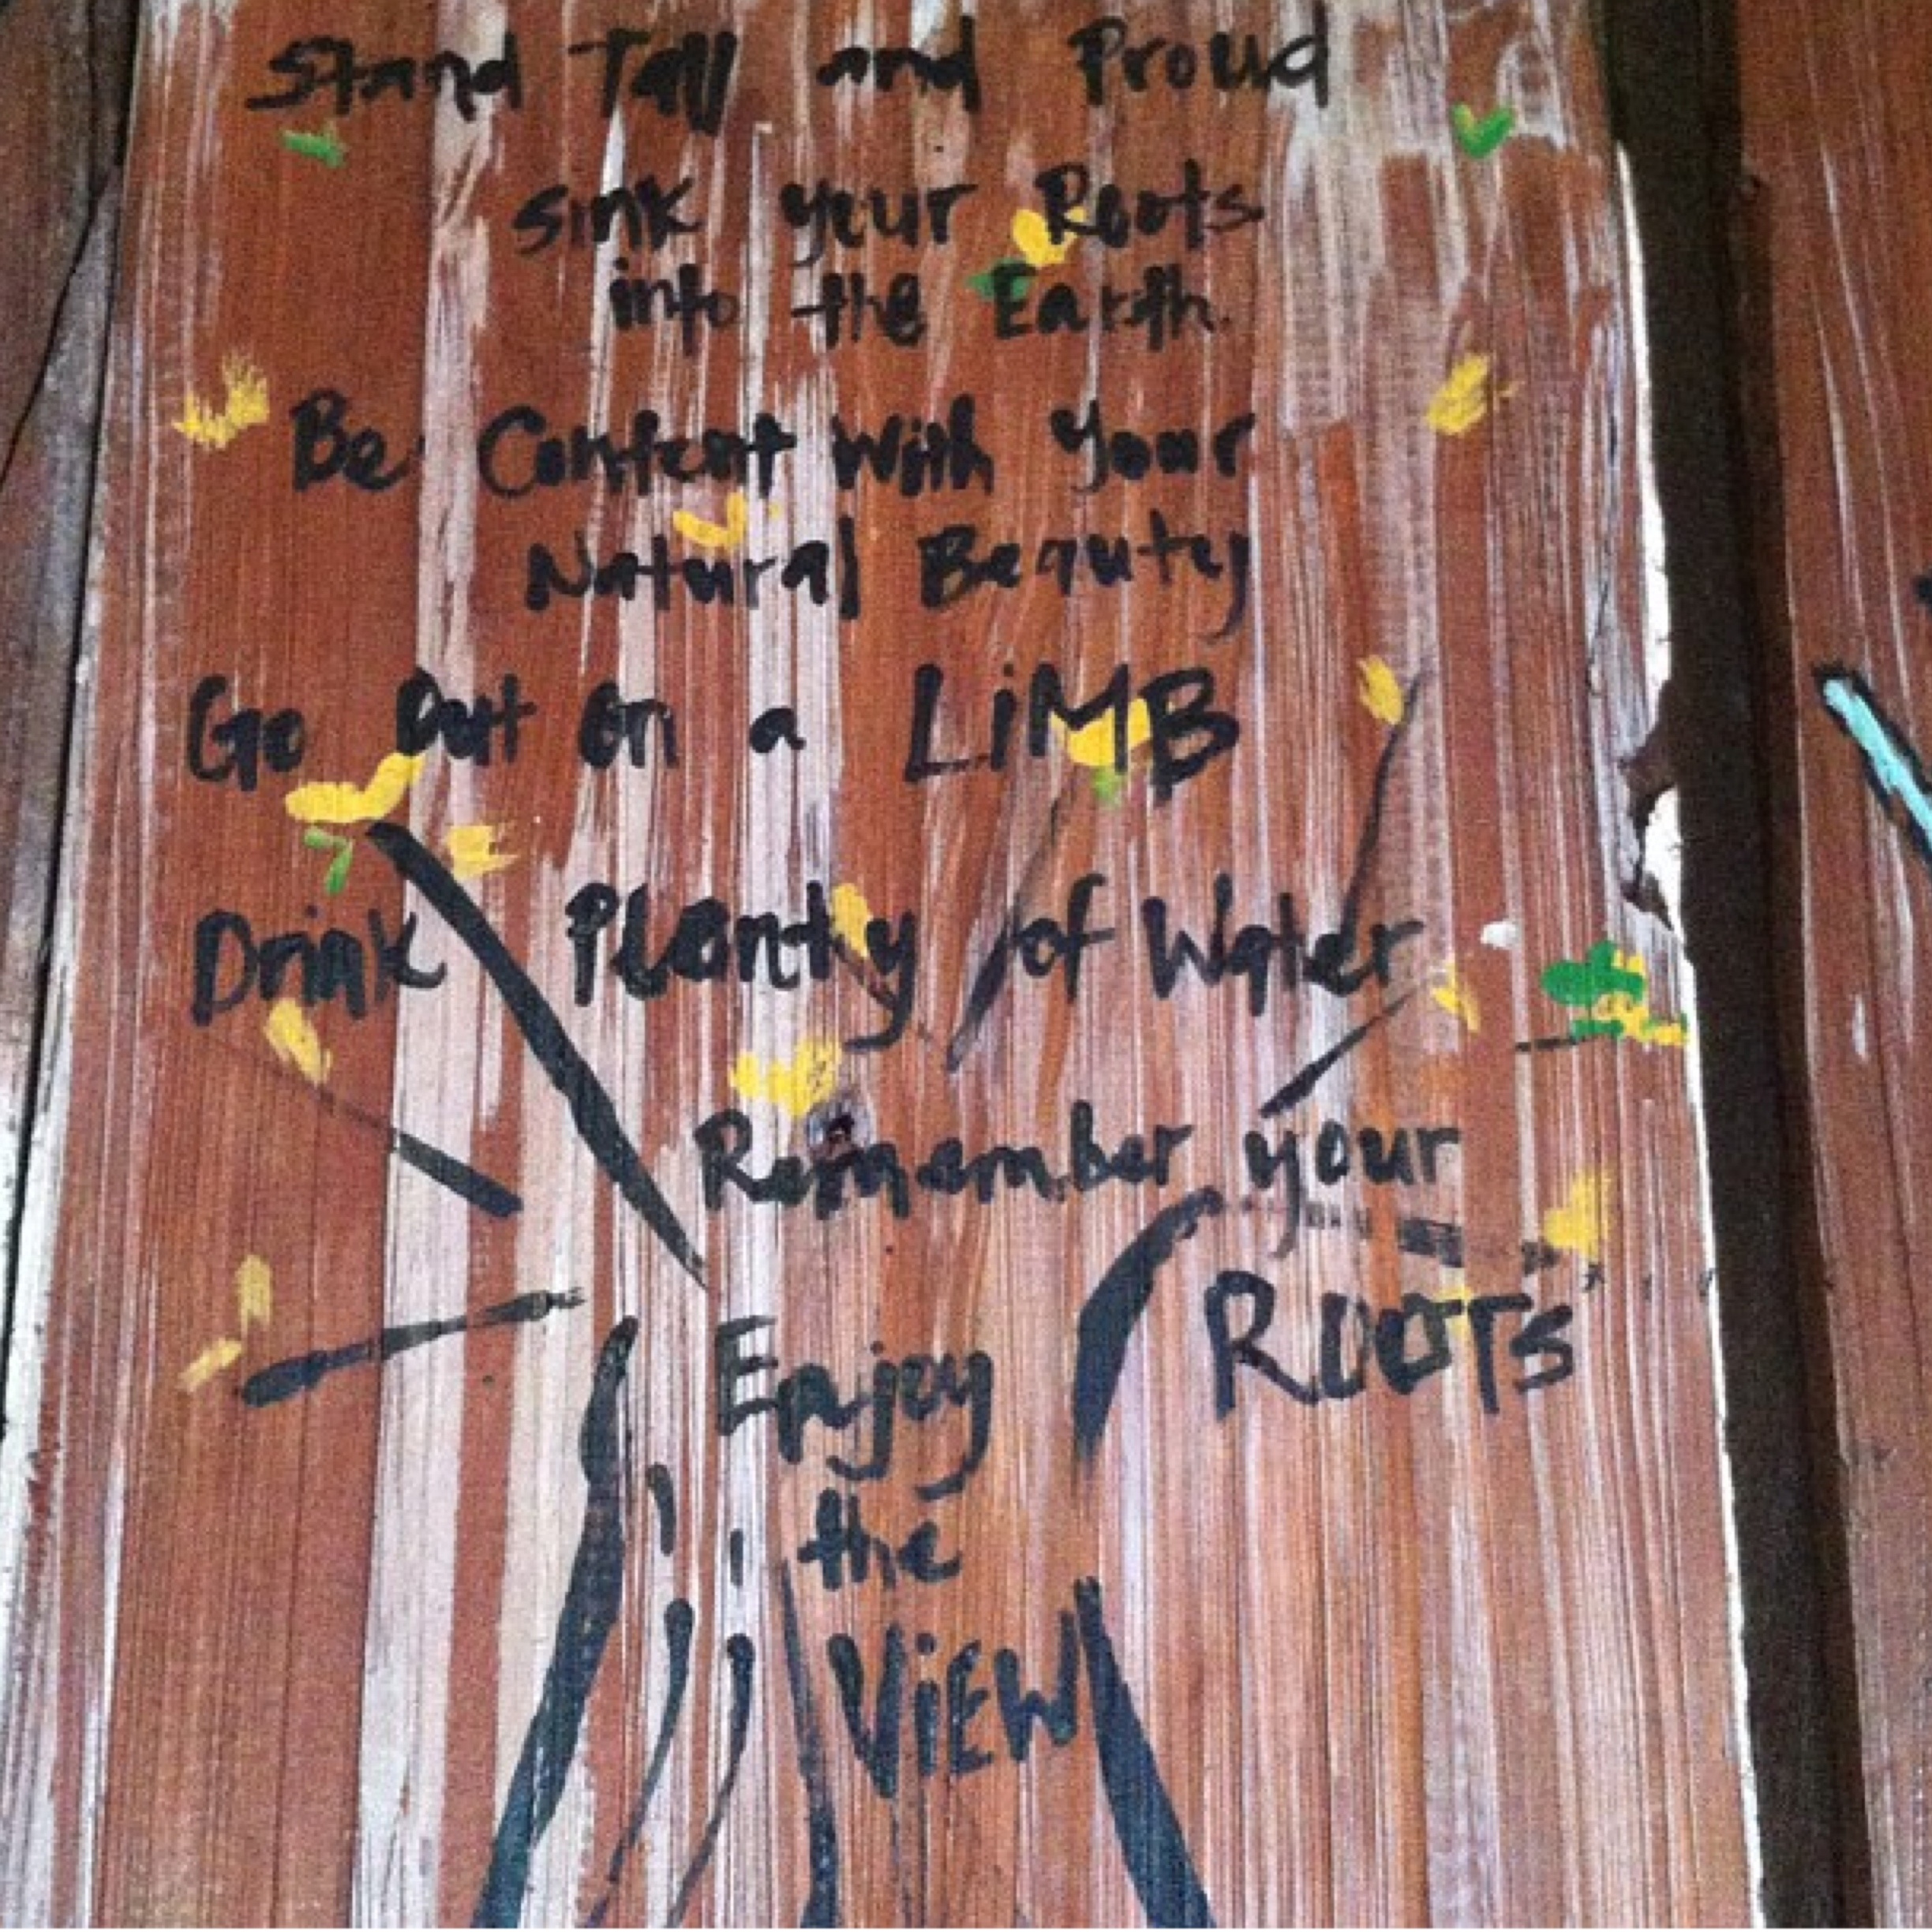 Stand Tall and Proud
Sink your Roots
into the Earth.
Be Content With Your
Natural Beauty
Go Out on a LiMB
Drink Plenty of Water
Remember your
ROOTS
Enjoy
the
ViEW